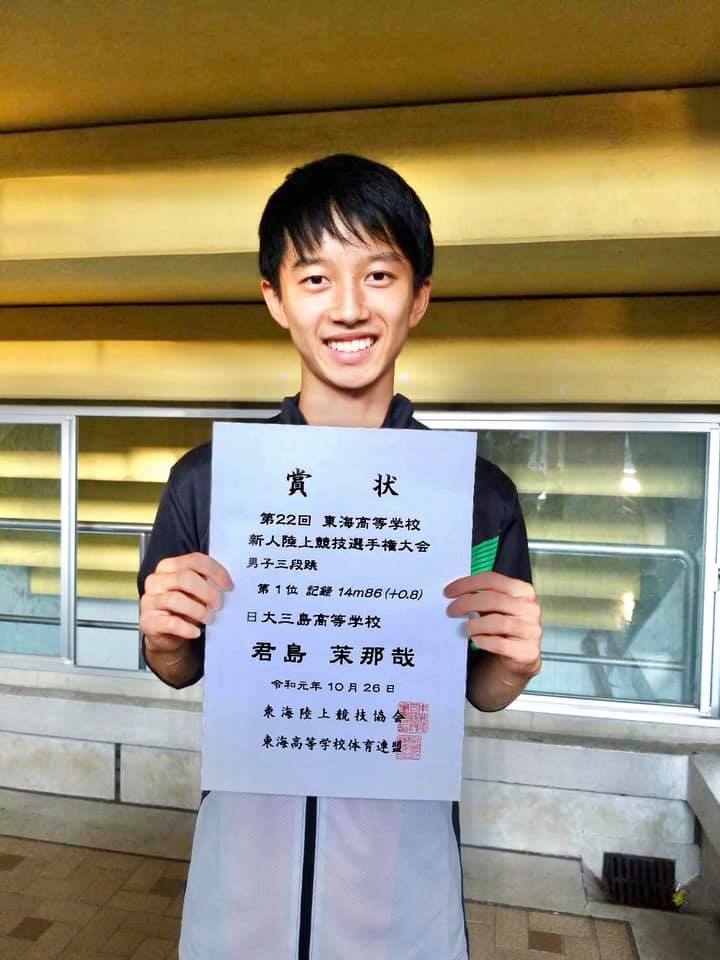 賞 状
第22回 東海高等学校
新人陸上競技選手権大会
男子三段跳
第1位 記録 14m86(+0.8)
日大三島高等学校
君島 茉那哉
令和元年10月26日
東海陸上競技協会
東海高等学校体育連盟